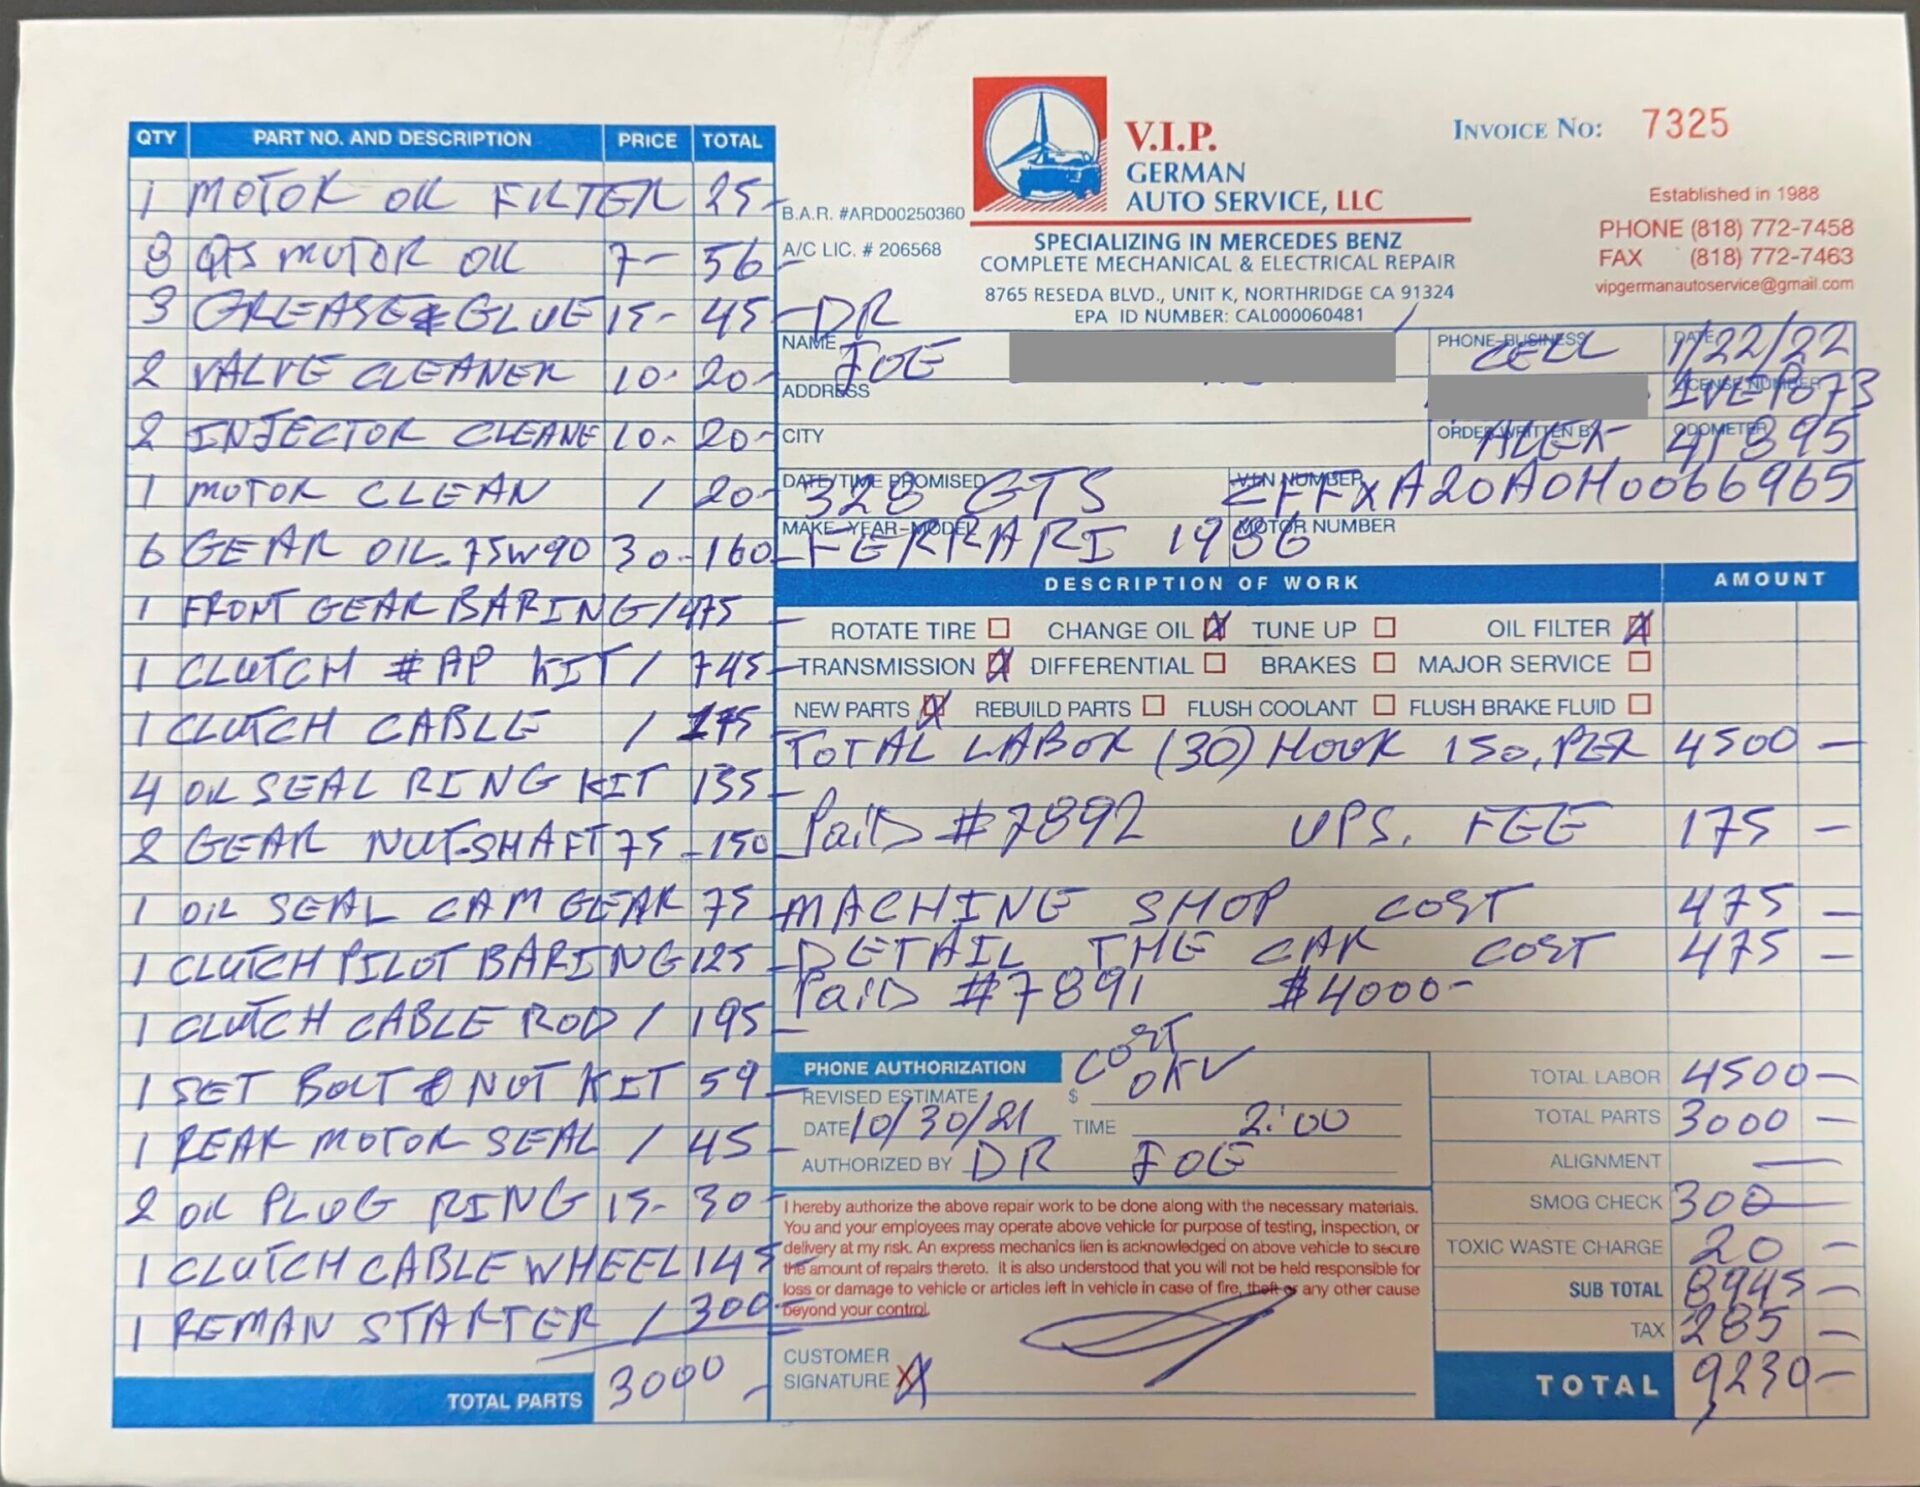 QTY PART NO. AND DESCRIPTION PRICE TOTAL
1 MOTOR OIL FILTER 25-
8 QTS MOTOR OIL 7- 56-
3 GREASE & GLUE 15- 45-
2 VALVE CLEANER 10- 20-
2 INJECTOR CLEANE 10- 20-
1 MOTOR CLEAN / 20-
6 GEAR OIL-75W90 30- 160-
1 FRONT GEAR BARING / 475-
1 CLUTCH #AP KIT / 745-
1 CLUTCH CABLE / 175-
4 OIL SEAL RING KIT 135-
2 GEAR NUT-SHAFT 75- 150-
1 OIL SEAL CAM GEAR 75-
1 CLUTCH PILOT BARING 125-
1 CLUTCH CABLE ROD / 195-
1 SET BOLT & NUT KIT 59-
1 REAR MOTOR SEAL / 45-
2 OIL PLUG RING 15- 30-
1 CLUTCH CABLE WHEEL 145-
1 REMAN STARTER / 300-
TOTAL PARTS 3000-
V.I.P.
GERMAN
AUTO SERVICE, LLC
B.A.R. #ARD00250360
A/C LIC. # 206568
SPECIALIZING IN MERCEDES BENZ
COMPLETE MECHANICAL & ELECTRICAL REPAIR
8765 RESEDA BLVD., UNIT K, NORTHRIDGE CA 91324
EPA ID NUMBER: CAL000060481
INVOICE NO: 7325
Established in 1988
PHONE (818) 772-7458
FAX (818) 772-7463
vipgermanautoservice@gmail.com
DR
NAME JOE
PHONE-BUSINESS CELL
DATE 1/22/22
ADDRESS
LICENSE NUMBER 1VEP873
CITY
ORDER WRITTEN BY ALEX
ODOMETER 41895
DATE/TIME PROMISED 328 GTS
VIN NUMBER ZFFXA20A0H0066965
MAKE-YEAR-MODEL FERRARI 1986
MOTOR NUMBER
DESCRIPTION OF WORK AMOUNT
ROTATE TIRE CHANGE OIL X TUNE UP OIL FILTER X
TRANSMISSION X DIFFERENTIAL BRAKES MAJOR SERVICE
NEW PARTS X REBUILD PARTS FLUSH COOLANT FLUSH BRAKE FLUID
TOTAL LABOR (30) HOUR 150, PER 4500-
PaiD #7892 UPS. FEE 175-
MACHINE SHOP COST 475-
DETAIL THE CAR COST 475-
PaiD #7891 $4000-
PHONE AUTHORIZATION
COST
REVISED ESTIMATE $ OK
DATE 10/30/21 TIME 2:00
AUTHORIZED BY DR JOE
I hereby authorize the above repair work to be done along with the necessary materials.
You and your employees may operate above vehicle for purpose of testing, inspection, or
delivery at my risk. An express mechanics lien is acknowledged on above vehicle to secure
the amount of repairs thereto. It is also understood that you will not be held responsible for
loss or damage to vehicle or articles left in vehicle in case of fire, theft or any other cause
beyond your control.
CUSTOMER
SIGNATURE X
TOTAL LABOR 4500-
TOTAL PARTS 3000-
ALIGNMENT -
SMOG CHECK 300-
TOXIC WASTE CHARGE 20-
SUB TOTAL 8945-
TAX 285-
TOTAL 9230-